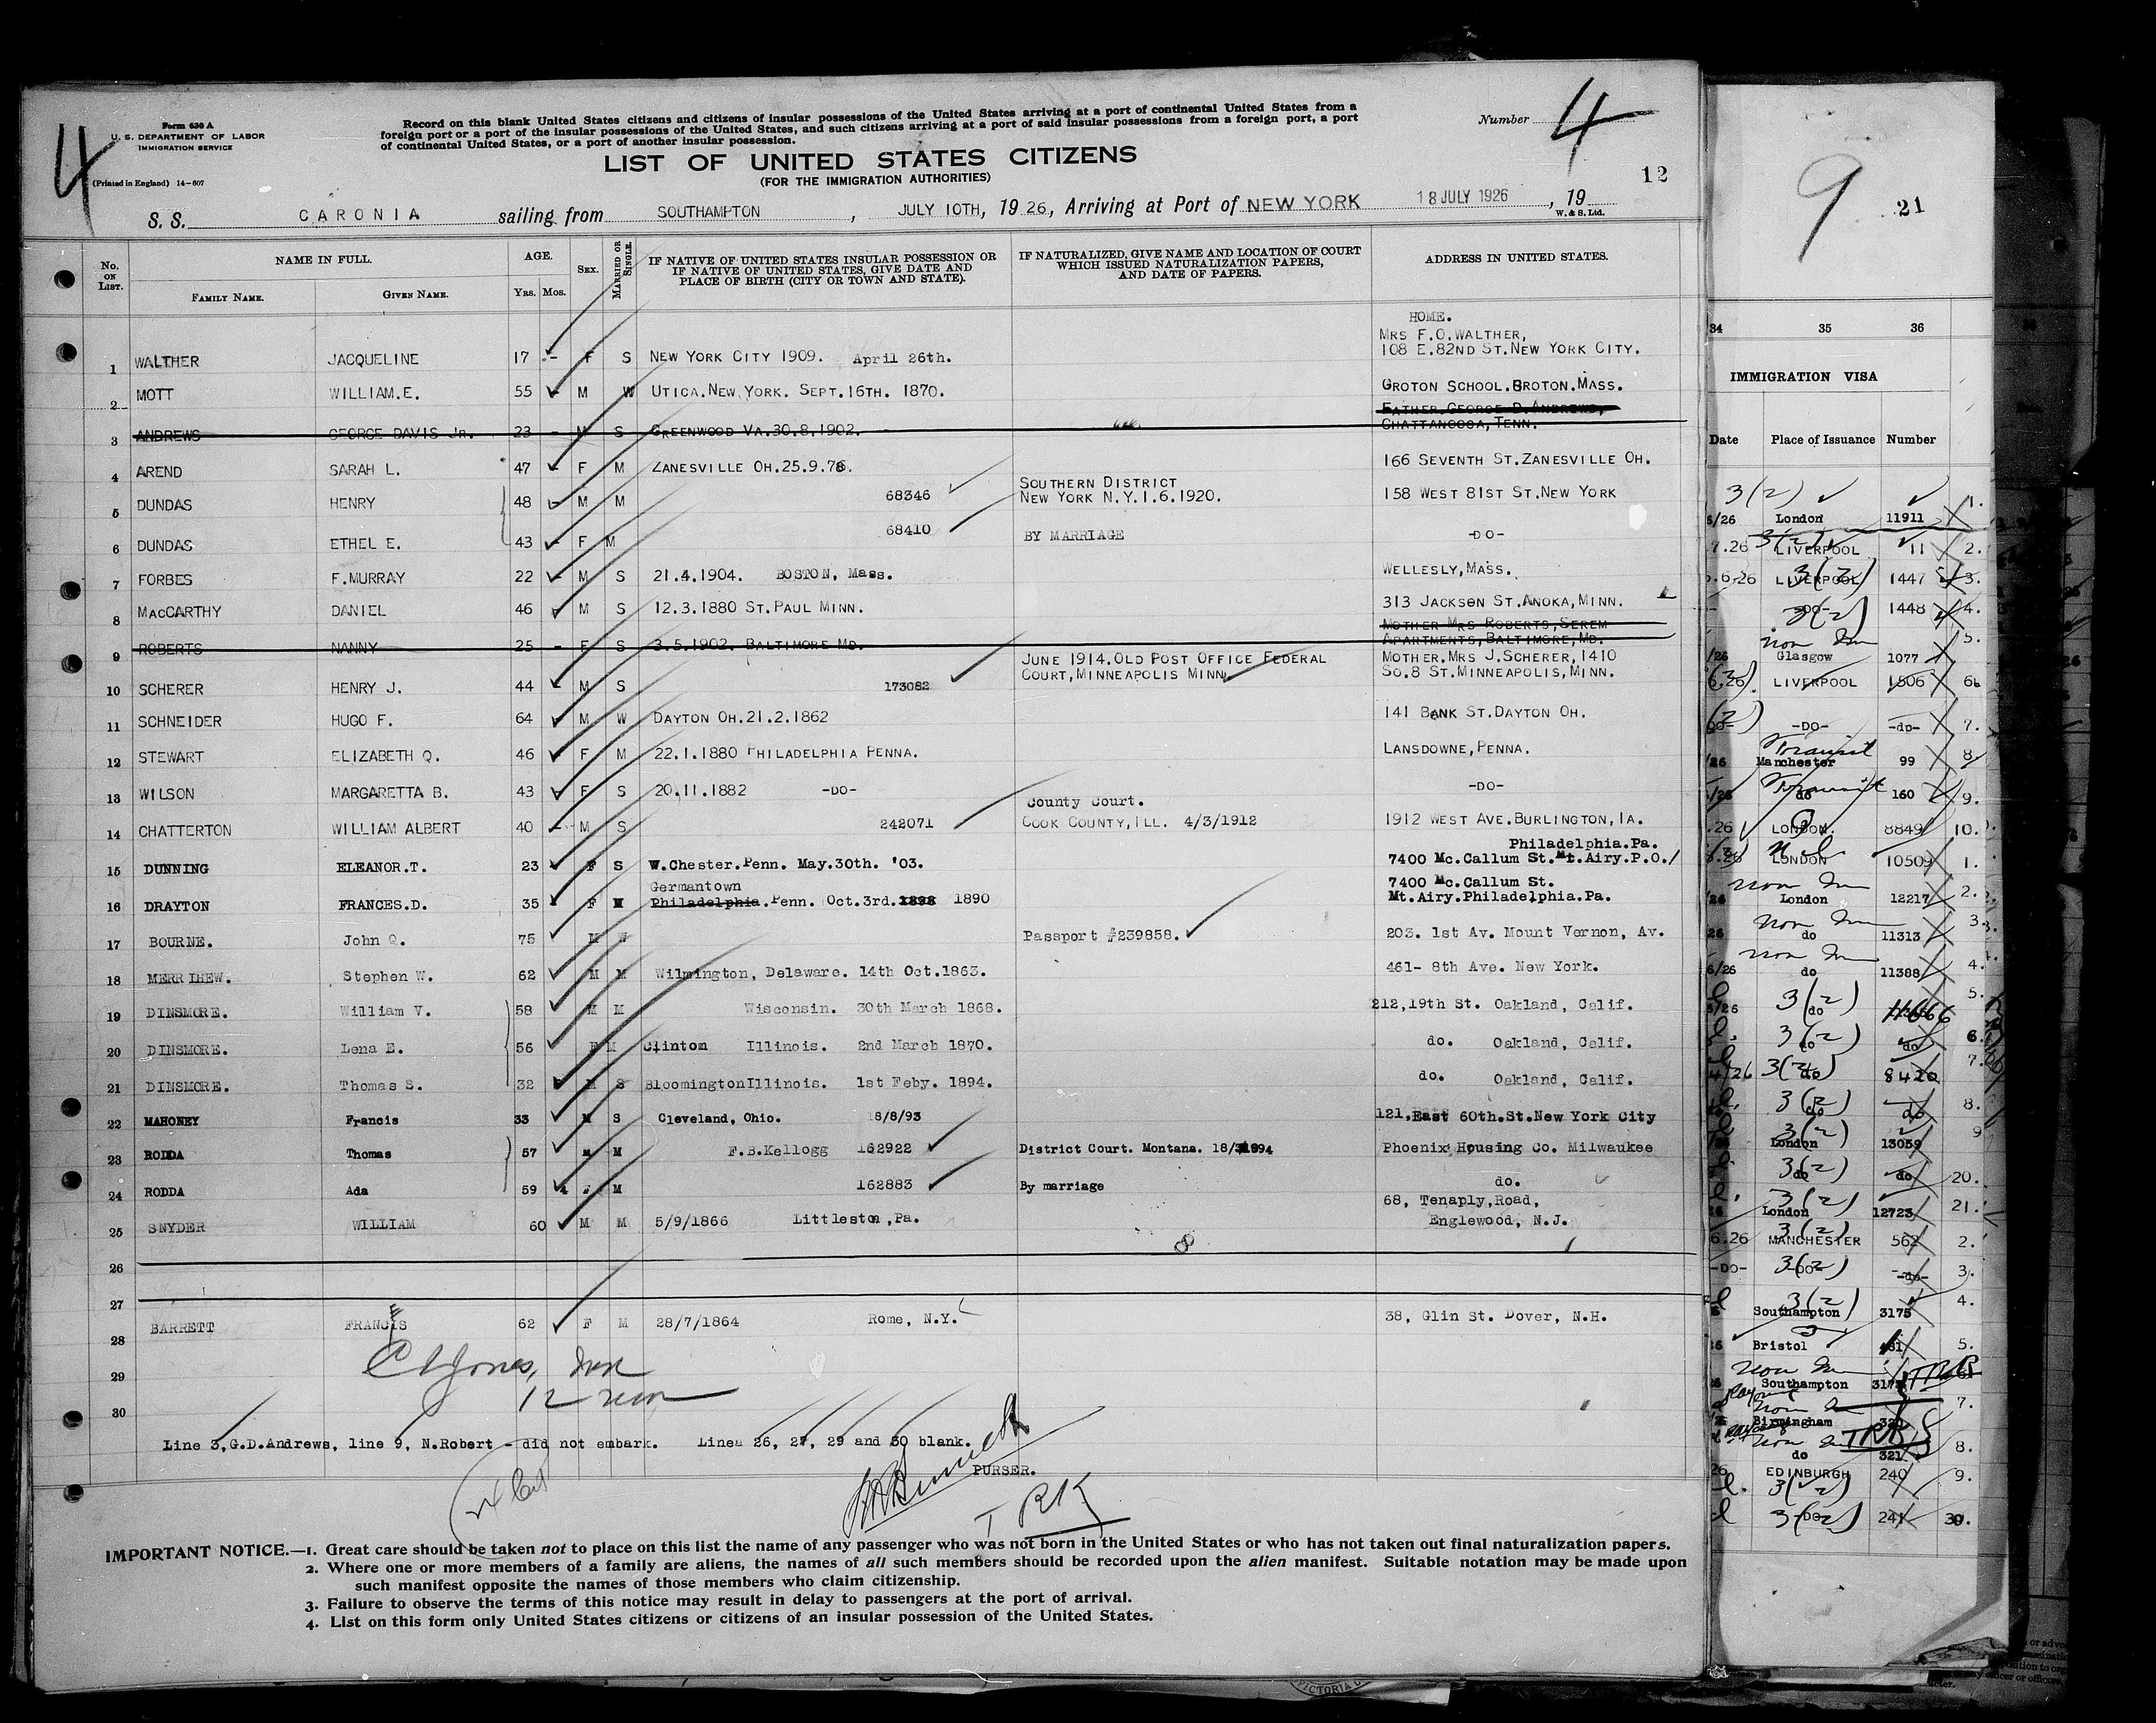 4
Form 630 A
U. S. DEPARTMENT OF LABOR
IMMIGRATION SERVICE
(Printed in England) 14-607
Record on this blank United States citizens and citizens of insular possessions of the United States arriving at a port of continental United States from a
foreign port or a port of the insular possessions of the United States, and such citizens arriving at a port of said insular possessions from a foreign port, a port
of continental United States, or a port of another insular possession.
Number 4
12
LIST OF UNITED STATES CITIZENS
(FOR THE IMMIGRATION AUTHORITIES)
S. S. CARONIA sailing from SOUTHAMPTON, JULY 10TH, 1926, Arriving at Port of NEW YORK 18 JULY 1926, 19
W. & S. Ltd.
No. ON LIST. NAME IN FULL. FAMILY NAME. GIVEN NAME. AGE. Yrs. Mos. SEX. MARRIED OR SINGLE. IF NATIVE OF UNITED STATES INSULAR POSSESSION OR IF NATIVE OF UNITED STATES, GIVE DATE AND PLACE OF BIRTH (CITY OR TOWN AND STATE). IF NATURALIZED, GIVE NAME AND LOCATION OF COURT WHICH ISSUED NATURALIZATION PAPERS, AND DATE OF PAPERS. ADDRESS IN UNITED STATES.
HOME.
MRS F.O.WALTHER,
1 WALTHER JACQUELINE 17 - F S NEW YORK CITY 1909. April 26th. 108 E.82ND ST.NEW YORK CITY.
2 MOTT WILLIAM.E. 55 - M W UTICA.NEW YORK. SEPT.16TH. 1870. GROTON SCHOOL.BROTON.MASS.
FATHER.GEORGE D.ANDREWS,
3 ANDREWS GEORGE DAVIS JR. 23 - M S GREENWOOD VA.30.8.1902. CHATTANOOGA, TENN.
4 AREND SARAH L. 47 - F M ZANESVILLE OH.25.9.78. 166 SEVENTH ST.ZANESVILLE OH.
SOUTHERN DISTRICT
5 DUNDAS HENRY 48 - M M 68346 NEW YORK N.Y.1.6.1920. 158 WEST 81ST ST.NEW YORK
6 DUNDAS ETHEL E. 43 - F M 68410 BY MARRIAGE -DO-
7 FORBES F.MURRAY 22 - M S 21.4.1904. BOSTON, Mass. WELLESLY, MASS.
8 MACCARTHY DANIEL 46 - M S 12.3.1880 ST.PAUL MINN. 313 JACKSON ST.ANOKA, MINN.
MOTHER MRS ROBERTS, SEREM
9 ROBERTS NANNY 25 - F S 3.5.1902. BALTIMORE MD. APARTMENTS, BALTIMORE, MD.
JUNE 1914.OLD POST OFFICE FEDERAL MOTHER.MRS J.SCHERER, 1410
10 SCHERER HENRY J. 44 - M S 173082 COURT, MINNEAPOLIS MINN. SO.8 ST.MINNEAPOLIS, MINN.
11 SCHNEIDER HUGO F. 64 M W DAYTON OH.21.2.1862 141 BANK ST.DAYTON OH.
12 STEWART ELIZABETH Q. 46 F M 22.1.1880 PHILADELPHIA PENNA. LANSDOWNE, PENNA.
13 WILSON MARGARETTA B. 43 F S 20.11.1882 -DO- -DO-
County Court.
14 CHATTERTON WILLIAM ALBERT 40 - M S 242071 COOK COUNTY, ILL. 4/3/1912 1912 WEST AVE.BURLINGTON, IA.
Philadelphia.Pa.
15 DUNNING ELEANOR.T. 23 F S W.Chester.Penn. May.30th. '03. 7400 Mc.Callum St.Mt.Airy.P.O./
Germantown 7400 Mc.Callum St.
16 DRAYTON FRANCES.D. 35 - F M Philadelphia.Penn. Oct.3rd.1898 1890 Mt.Airy.Philadelphia.Pa.
17 BOURNE. John Q. 75 M W Passport #239858. 203. 1st Av. Mount Vernon, Av.
18 MERRIHEW. Stephen W. 62 M M Wilmington, Delaware. 14th Oct.1863. 461- 8th Ave. New York.
19 DINSMORE. William V. 58 M M Wisconsin. 30th March 1868. 212,19th St. Oakland, Calif.
20 DINSMORE. Lena E. 56 F M Clinton Illinois. 2nd March 1870. do. Oakland, Calif.
21 DINSMORE. Thomas S. 32 M S BloomingtonIllinois. 1st Feby. 1894. do. Oakland, Calif.
22 MAHONEY Francis 33 M S Cleveland, Ohio. 18/8/93 121.East 60th.St.New York City
23 RODDA Thomas 57 M M F.B.Kellogg 162922 District Court. Montana. 18/3/1894 Phoenix Housing Co. Milwaukee
24 RODDA Ada 59 F M 162883 By marriage do.
68, Tenaply,Road,
25 SNYDER WILLIAM 60 M M 5/9/1866 Littleston,Pa. Englewood, N.J.
26
27
28 BARRETT FRANCIS E 62 F M 28/7/1864 Rome, N.Y. 38, Glin St. Dover, N.H.
29
30
Line 3,G.D.Andrews, line 9, N.Robert - did not embark. Linea 26, 27, 29 and 30 blank.
PURSER.
TRK
IMPORTANT NOTICE.—1. Great care should be taken not to place on this list the name of any passenger who was not born in the United States or who has not taken out final naturalization papers.
2. Where one or more members of a family are aliens, the names of all such members should be recorded upon the alien manifest. Suitable notation may be made upon
such manifest opposite the names of those members who claim citizenship.
3. Failure to observe the terms of this notice may result in delay to passengers at the port of arrival.
4. List on this form only United States citizens or citizens of an insular possession of the United States.
9
21
34 35 36
IMMIGRATION VISA
Date Place of Issuance Number
3(2)
5/26 London 11911 1.
7.26 LIVERPOOL 11 2.
5.6.26 LIVERPOOL 1447 3.
-DO- 1448 4.
/26 Glasgow 1077 5.
6.26 LIVERPOOL 1506 6.
-DO- -DO- -do- 7.
Transit
/26 Manchester 99 8
Transit
/26 do 160 9.
.26 LONDON. 8849 10.
.26 LONDON 10509 1.
/26 London 12217 2.
26 do 11313 3.
6/26 do 11388 4.
6/26 3(2) do 11666 5.
3(2) do do 6.
4/26 3(2) do 8420 7.
3(2) do do 8.
3(2) London 13059 9
3(2) do do 20.
26 3(2) London 12723 21.
6.26 3(2) MANCHESTER 562 2.
-DO- 3(2) -DO- -do- 3.
3(2) Southampton 3175 4.
26 Bristol 481 5.
26 Southampton 317 TRK
/26 Birmingham 320 7.
do 321 TRK 8.
26 EDINBURGH 240 9.
3(2) -DO- 241 30.
VICTORIA